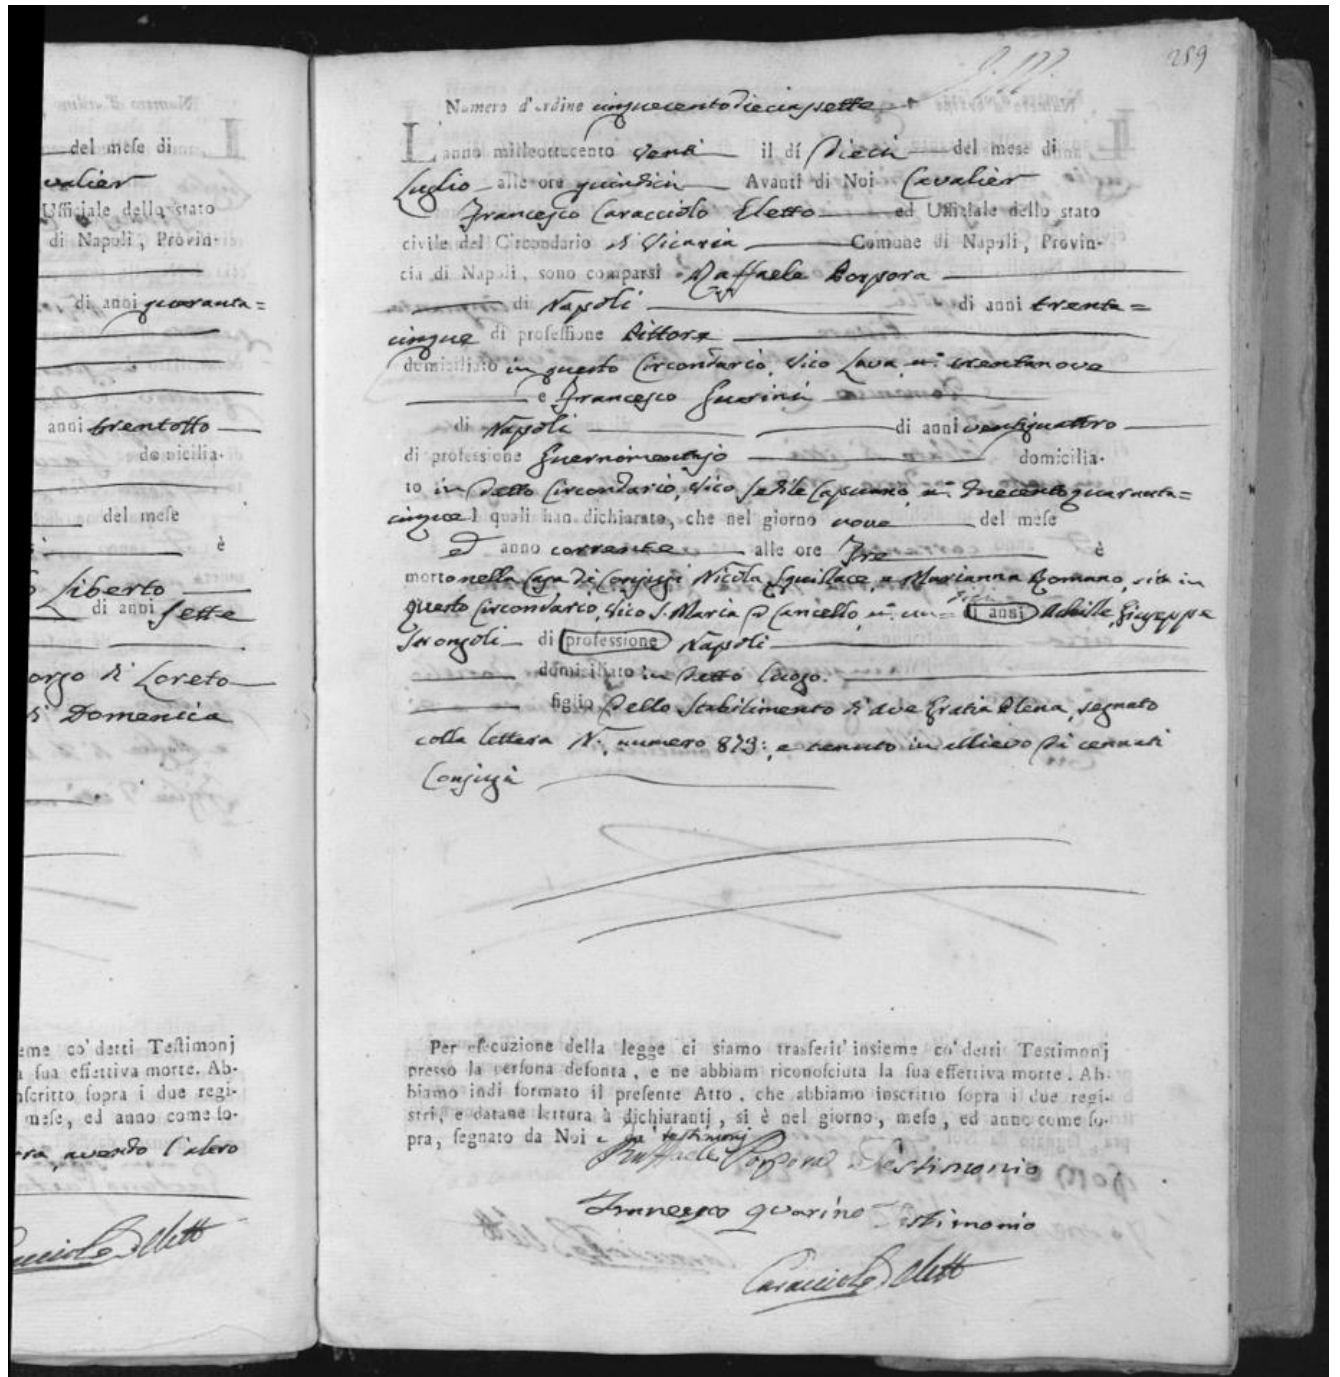 del mese di
valier
Ufficiale dello stato
di Napoli, Provin-
di anni quaranta=
anni trentotto
domicilia-
del mese
è
Liberto
di anni sette
orgo di Loreto
di Domenica
ieme co'detti Testimonj
a sua effettiva morte. Ab-
inscritto sopra i due regi-
mese, ed anno come so-
avendo l'altro
289
Numero d'ordine cinquecentodieciassette
L'anno milleottocento venti il dí dieci del mese di
Luglio alle ore quindici Avanti di Noi Cavalier
Francesco Caracciolo Eletto ed Ufficiale dello stato
civile del Circondario di Vicaria Comune di Napoli, Provin-
cia di Napoli, sono comparsi Raffaele Porpora
di Napoli di anni trenta=
cinque di professione Pittore
domiciliato in questo Circondario, Vico Lava, n.° trentanove
e Francesco Guarini
di Napoli di anni ventiquattro
di professione domicilia-
to in detto Circondario, Vico Sedile Capuano, n.° duecentoquaranta=
cinque I quali han dichiarato, che nel giorno nove del mese
ed anno corrente alle ore tre è
morto nella Casa di Conjugi Nicola Squillace, e Marianna Romano, sita in
questo Circondario, Vico S. Maria a Cancello, n.° un= di anni Achille, Giuseppe
Strongoli di professione Napoli
domiciliato in detto luogo.
figlio dello Stabilimento di ave Gratia Plena, segnato
colla lettera N., numero 873: e tenuto in allievo da cennati
Conjugi
Per esecuzione della legge ci siamo trasferit' insieme co'detti Testimonj
presso la persona defonta, e ne abbiam riconosciuta la sua effettiva morte. Ab-
biamo indi formato il presente Atto, che abbiamo inscritto sopra i due regi-
stri, e datane lettura à dichiaranti, si è nel giorno, mese, ed anno come so-
pra, segnato da Noi e da' testimonj
Raffaele Porpora Testimonio
Francesco Guarino Testimonio
Caracciolo Eletto